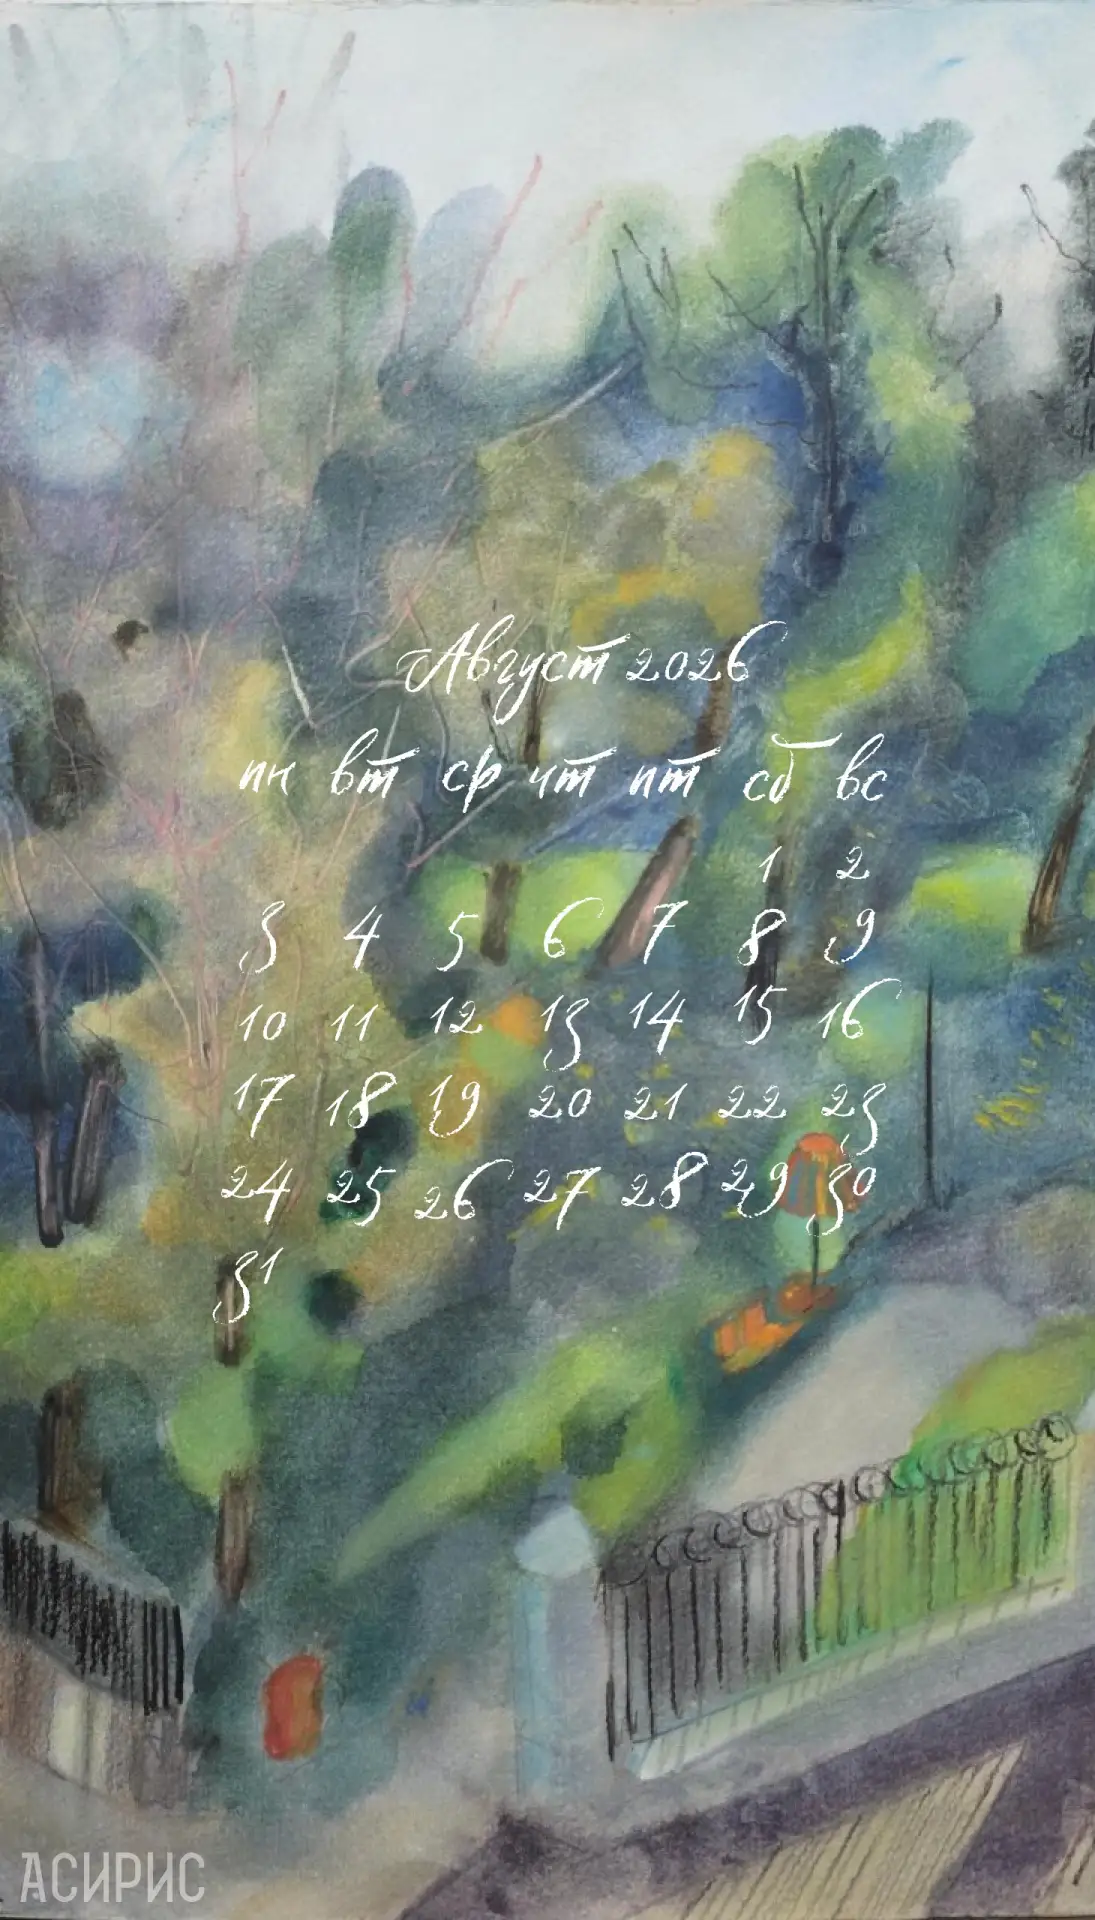 Август 2026
пн вт ср чт пт сб вс
1 2
3 4 5 6 7 8 9
10 11 12 13 14 15 16
17 18 19 20 21 22 23
24 25 26 27 28 29 30
31
АСИРИС